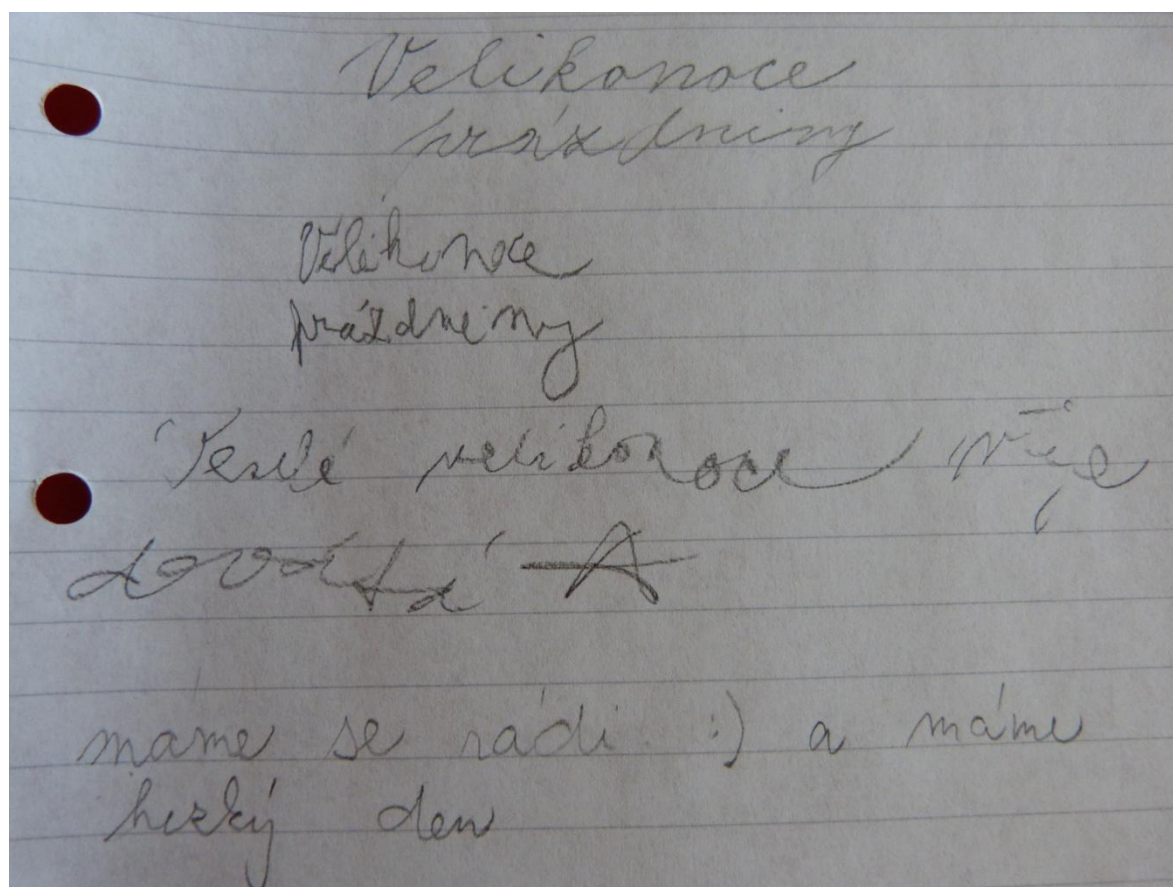 Velikonoce
prázdniny
Velikonoce
prázdniny
Veselé velikonoce
A
máme se rádi :) a máme
hezký den